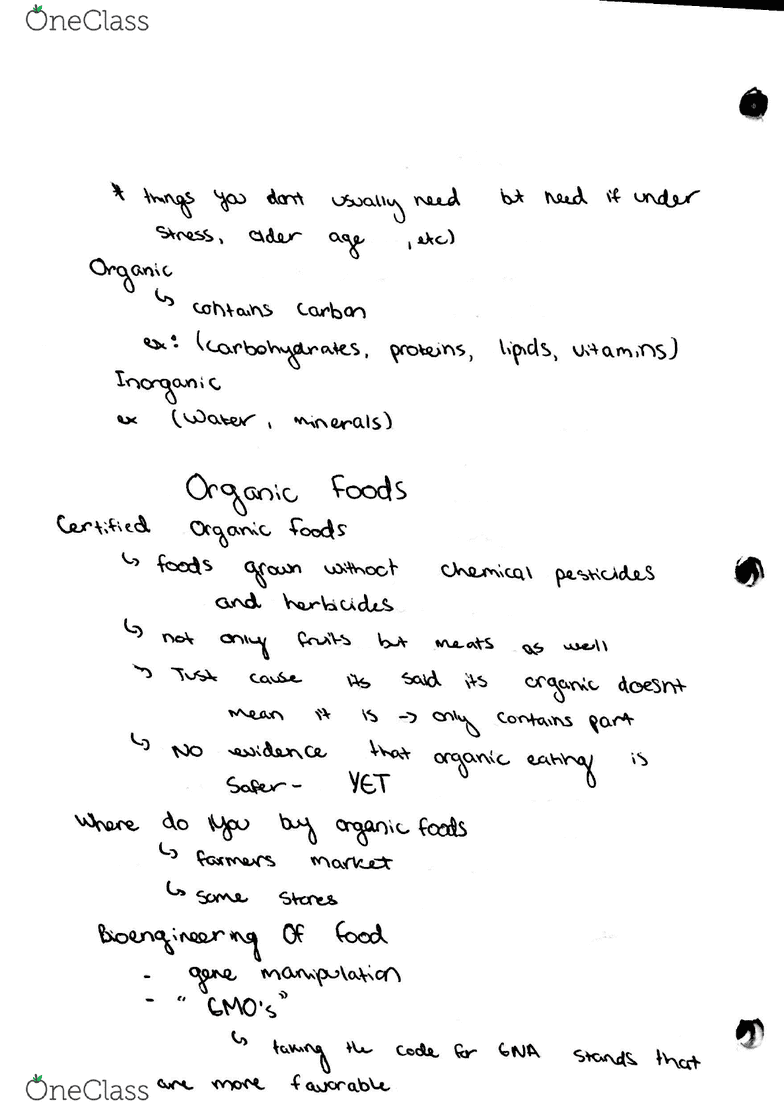 OneClass
* things you dont usually need bt need if under
stress, older age , etc)
Organic
↳ contains carbon
ex: (carbohydrates, proteins, lipids, vitamins)
Inorganic
ex (Water, minerals)
Organic Foods
Certified Organic foods
↳ foods grown without chemical pesticides
and herbicides
↳ not only fruits but meats as well
↳ Just cause its said its organic doesnt
mean it is → only contains part
↳ No evidence that organic eating is
Safer - YET
Where do you by organic foods
↳ farmers market
↳ some stores
Bioengineering Of Food
- gene manipulation
- "GMO's"
↳ taking the code for GNA stands that
are more favorable
OneClass